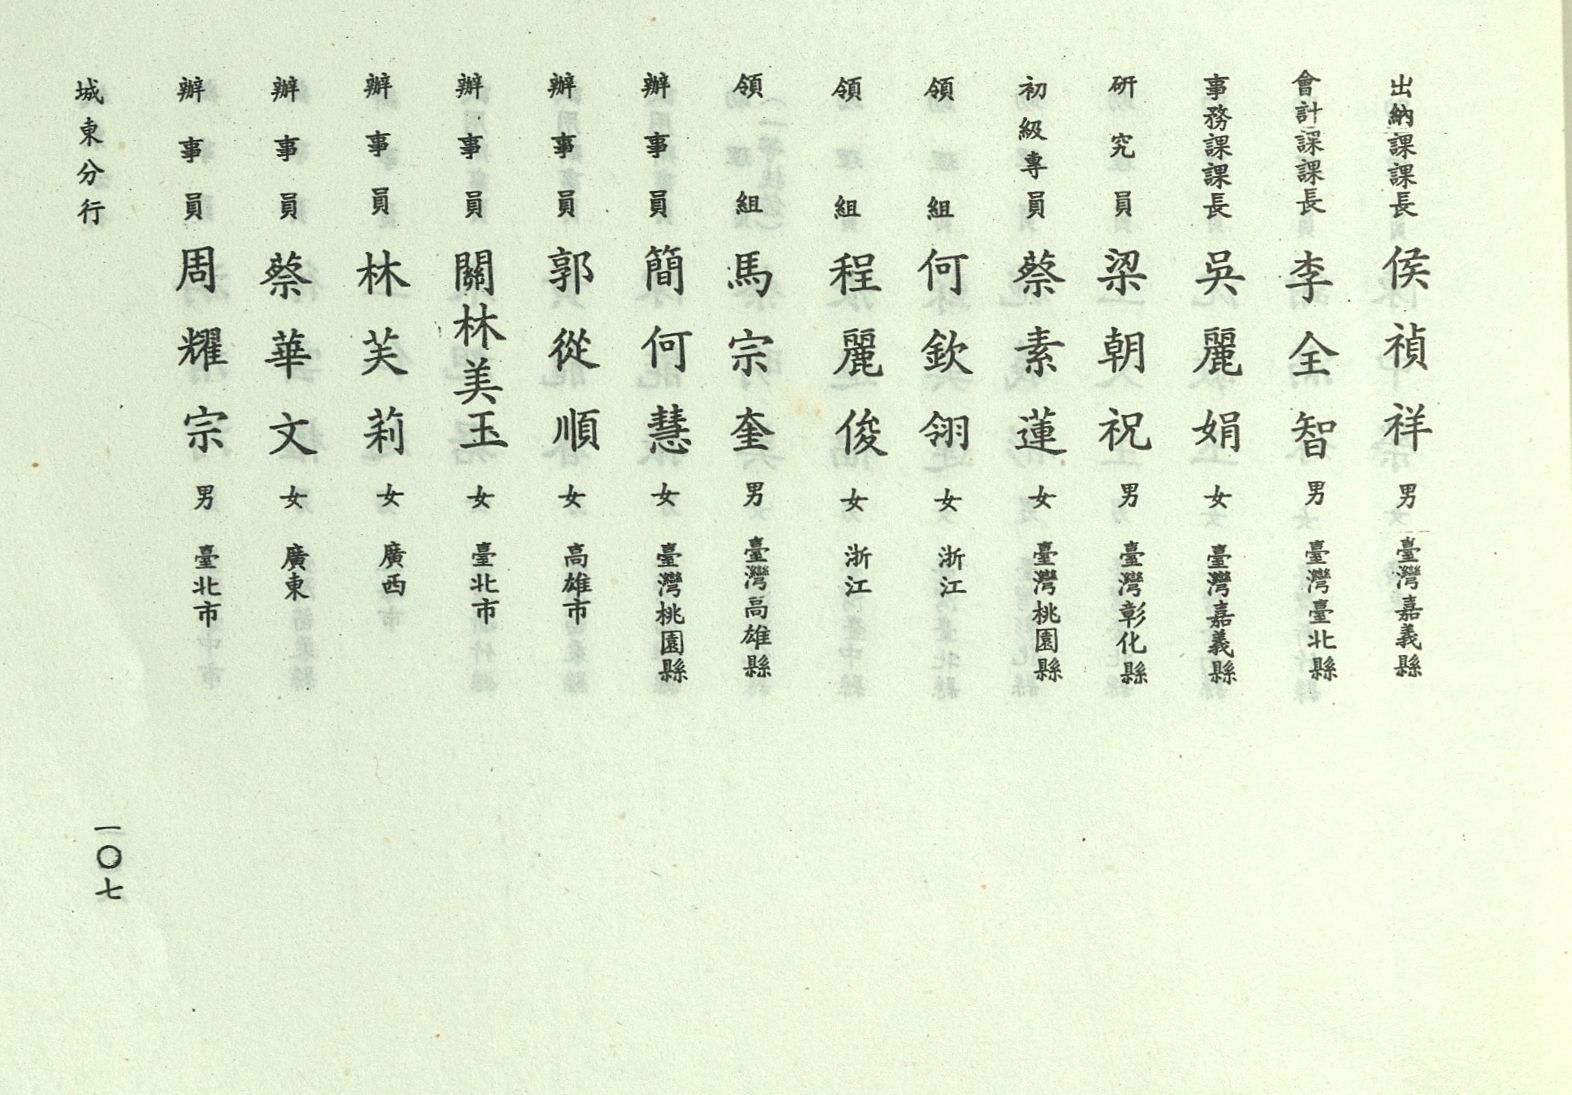 出納課課長 侯禎祥 男 臺灣嘉義縣
會計課課長 李全智 男 臺灣臺北縣
事務課課長 吳麗娟 女 臺灣嘉義縣
研究員 梁朝祝 男 臺灣彰化縣
初級專員 蔡素蓮 女 臺灣桃園縣
領組 何欽翎 女 浙江
領組 程麗俊 女 浙江
領組 馬宗奎 男 臺灣高雄縣
辦事員 簡何慧 女 臺灣桃園縣
辦事員 郭從順 女 高雄市
辦事員 關林美玉 女 臺北市
辦事員 林芙莉 女 廣西
辦事員 蔡華文 女 廣東
辦事員 周耀宗 男 臺北市
城東分行
一〇七